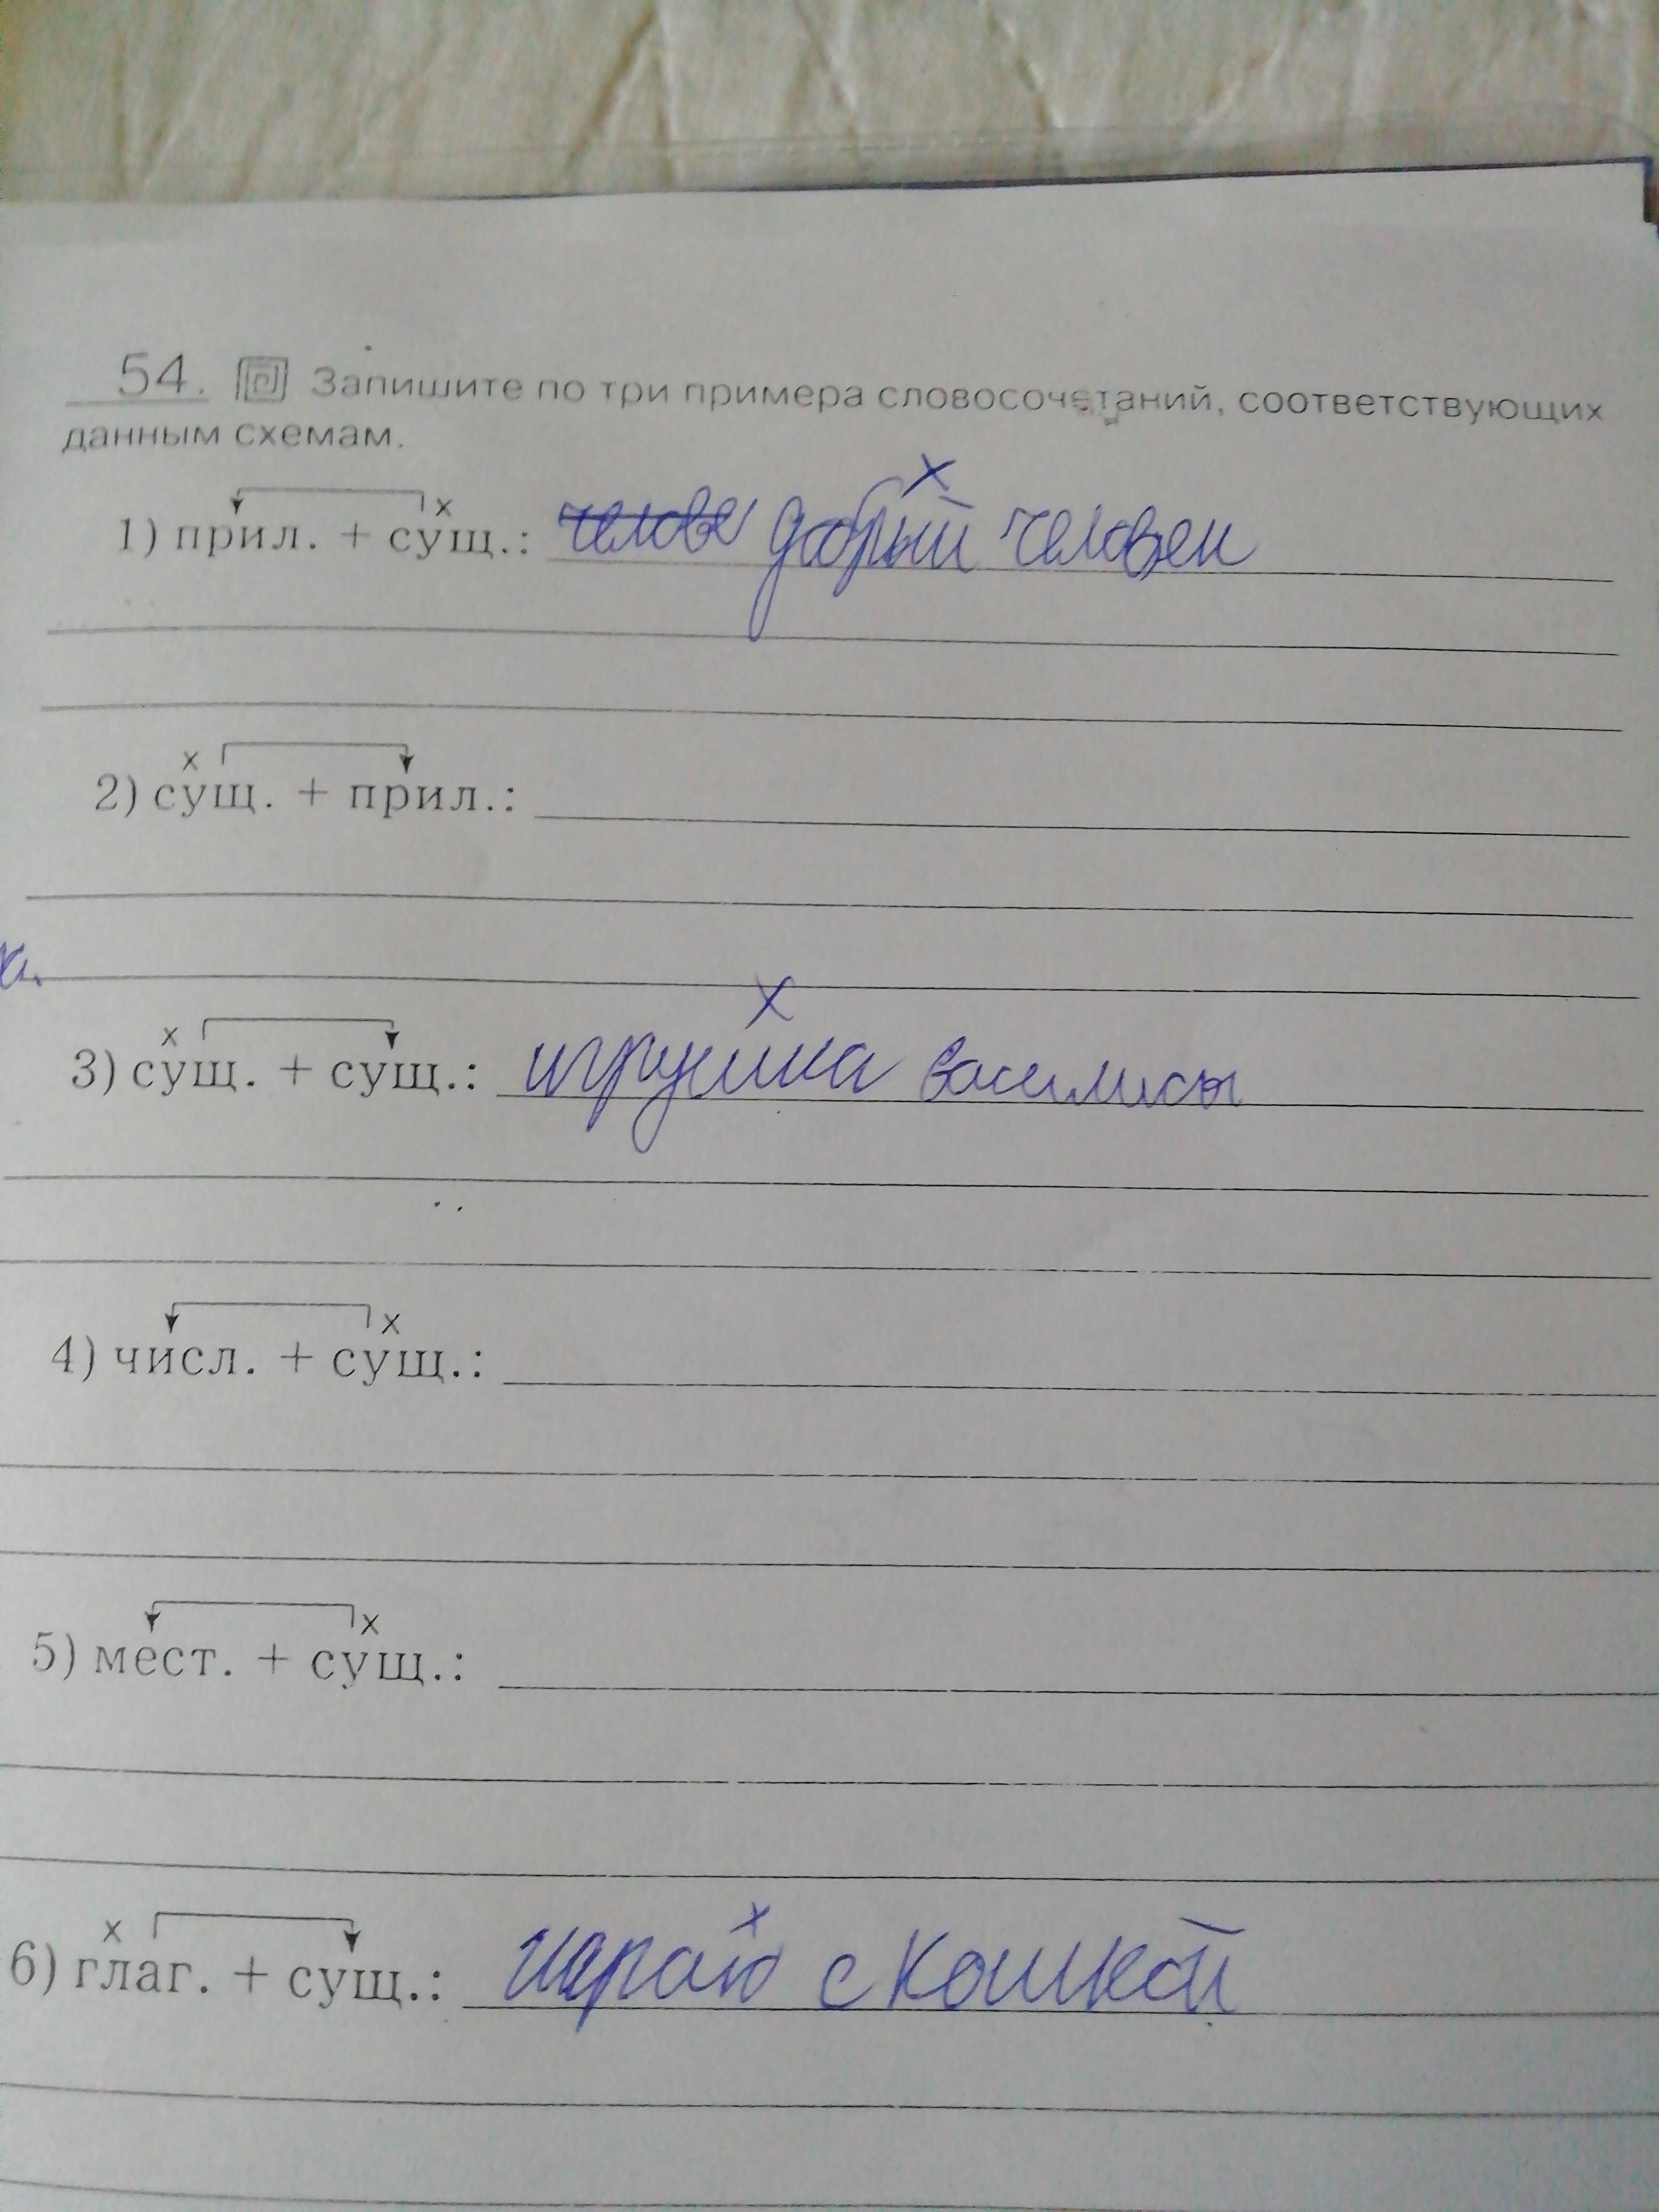 54. Запишите по три примера словосочетаний, соответствующих
данным схемам.
х
1) прил. + сущ.: челове добрый человек
х
х
2) сущ. + прил.:
а.
х
х
3) сущ. + сущ.: игрушка василисы
х
4) числ. + сущ.:
х
5) мест. + сущ.:
х
х
6) глаг. + сущ.: играю с кошкой